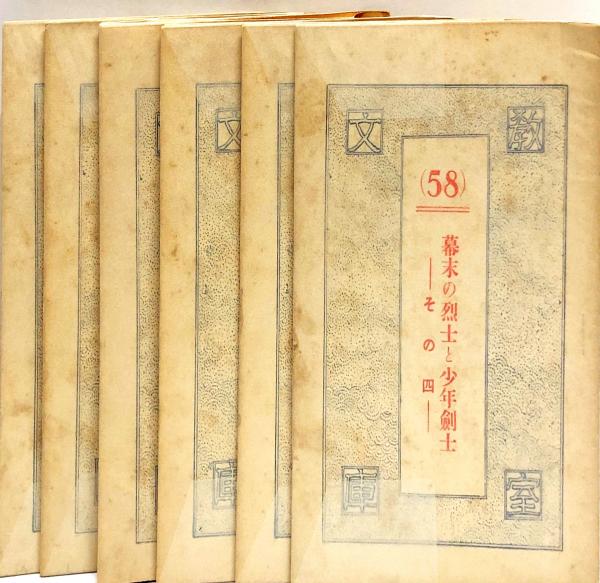 教室文庫
(58)
幕末の烈士と少年劍士
―その四―
文
庫